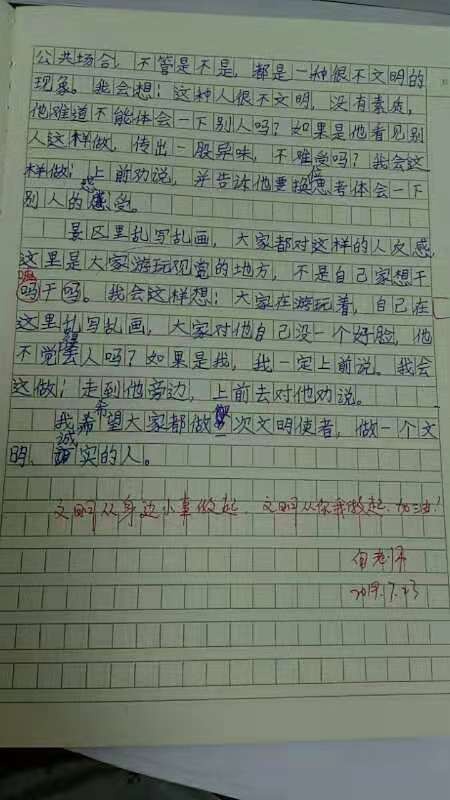 公共场合，不管是不是，都是一种很不文明的
现象。我会想：这种人很不文明，没有素质，
他难道不能体会一下别人吗？如果是他看见别
人这样做，传出一股异味，不难受吗？我会这
样做：上前劝说，并告诉他要换位思考体会一下
别人的感受。
景区里乱写乱画，大家都对这样的人反感，
这里是大家游玩观赏的地方，不是自己家想干
嘛干吗。我会这样想：大家在游玩着，自己在
这里乱写乱画，大家对他自己没一个好脸，他
不觉得丢人吗？如果是我，我一定上前说。我会
这做：走到他旁边，上前去对他劝说。
我希望大家都做一次文明使者，做一个文
明、诚实的人。
文明从身边小事做起，文明从你我做起，加油！
2019.7.23